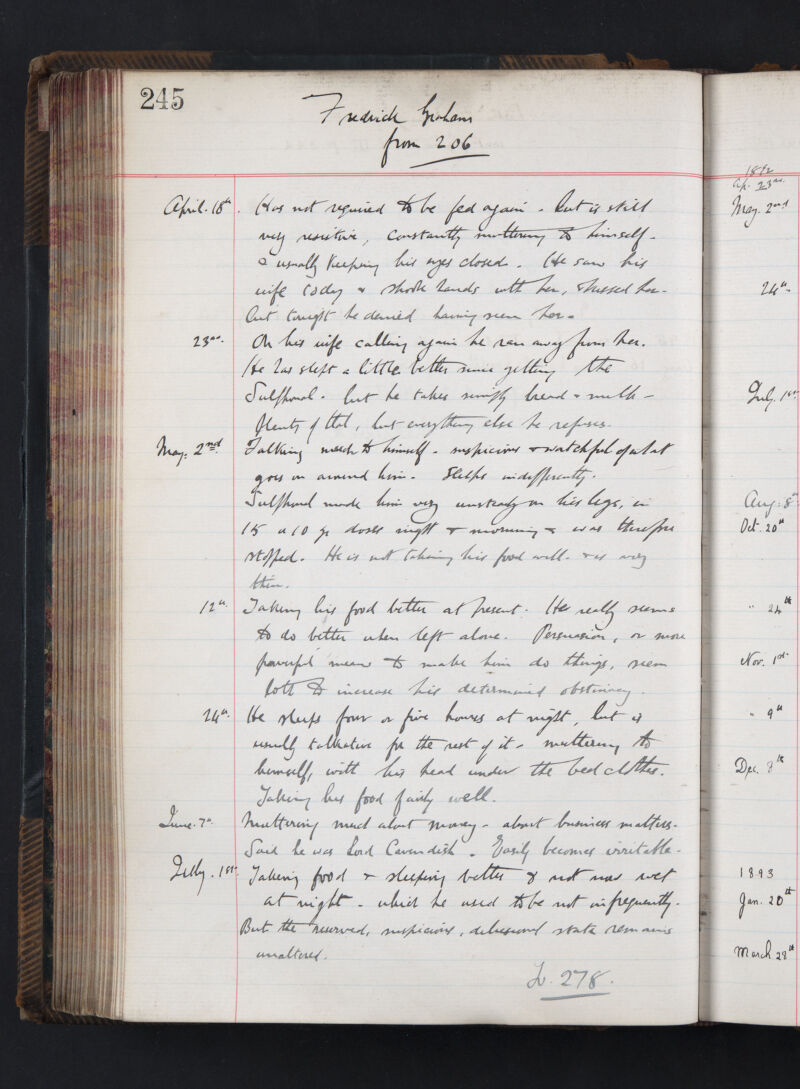 245
Fredrick Graham
from 206
April. 18th. Has not required to be fed again - but is still
very resistive, constantly muttering to himself -
& usually keeping his eyes closed. He saw his
wife today & shook hands with her, & kissed her -
but tonight he denied having seen her -
23rd. On his wife calling again he ran away from her.
He has slept a little better since getting the
Sulphonal - but he takes simply bread & milk -
plenty of that, but everything else he refuses.
May. 2nd. Talking much to himself - suspicious & watchful of what
goes on around him - Sleeps indifferently.
Sulphonal made him very unsteady on his legs, in
15 a 10 gr doses night & morning & was therefore
stopped. He is not taking his food well - & is very
thin.
12th. Taking his food better at present. He really seems
to do better when left alone. Persuasion, or more
powerful means to make him do things, seem
both to increase his determined obstinacy.
24th. He sleeps four or five hours at night, but is
usually talkative for the rest of it - muttering to
himself, with his head under the bed clothes.
Taking his food fairly well.
June. 7th. Muttering much about money - about business matters.
Said he was Lord Cavendish. Easily becomes irritable -
July. 1st. Taking food & sleeping better & not now wet
at night - which he used to be not infrequently.
But the reserved, suspicious, delusional state remains
unaltered.
To. 278.
1892
Ap. 23rd.
May. 2nd
24th.
July. 1st.
Aug. 8th
Oct. 20th
" 24th
Nov. 1st
" 9th
Dec. 8th
1893
Jan. 20th
March 28th